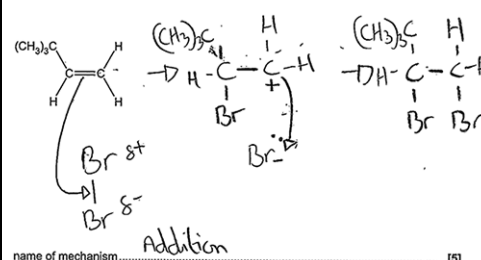 (CH₃)₃C H
C=C
H H
(CH3)3C H
H-C-C-H
+
Br
Br-
(CH3)3C H
H-C-C-H
Br Br
Br δ+
Br δ-
name of mechanism Addition [5]